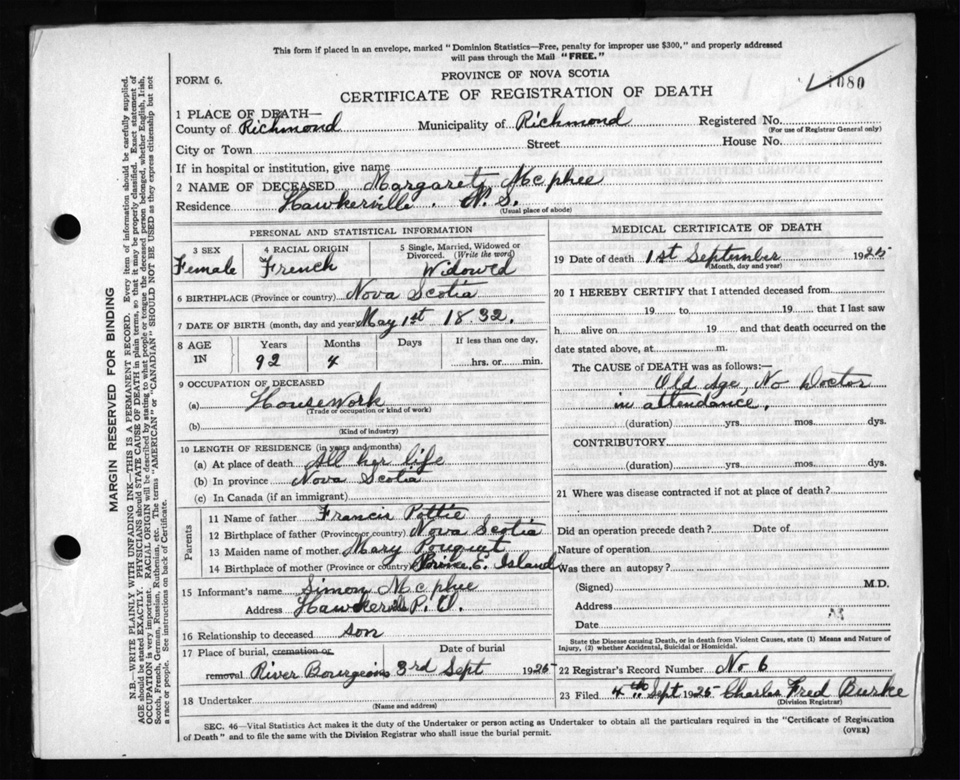 This form if placed in an envelope, marked "Dominion Statistics—Free, penalty for improper use $300," and properly addressed
will pass through the Mail "FREE."
FORM 6.
PROVINCE OF NOVA SCOTIA
1080
CERTIFICATE OF REGISTRATION OF DEATH
1 PLACE OF DEATH—
County of Richmond Municipality of Richmond Registered No.
(For use of Registrar General only)
City or Town Street House No.
If in hospital or institution, give name
2 NAME OF DECEASED Margaret Mcphee
Residence Hawkerville. N.S.
(Usual place of abode)
PERSONAL AND STATISTICAL INFORMATION
3 SEX 4 RACIAL ORIGIN 5 Single, Married, Widowed or
Divorced. (Write the word)
Female French Widowed
6 BIRTHPLACE (Province or country) Nova Scotia
7 DATE OF BIRTH (month, day and year) May 1st 1832.
8 AGE Years Months Days If less than one day,
IN 92 4 hrs. or min.
9 OCCUPATION OF DECEASED
(a) Housework
(Trade or occupation or kind of work)
(b)
(Kind of industry)
10 LENGTH OF RESIDENCE (in years and months)
(a) At place of death All her life
(b) In province Nova Scotia
(c) In Canada (if an immigrant)
Parents
11 Name of father Francis Pottie
12 Birthplace of father (Province or country) Nova Scotia
13 Maiden name of mother Mary
14 Birthplace of mother (Province or country) Prince E. Island
15 Informant's name Simon Mcphee
Address Hawkerville P.O.
16 Relationship to deceased son
17 Place of burial, cremation or Date of burial
removal River Bourgeois 3rd Sept 1925
18 Undertaker
(Name and address)
MEDICAL CERTIFICATE OF DEATH
19 Date of death 1st September 1925
(Month, day and year)
20 I HEREBY CERTIFY that I attended deceased from
19 to 19 that I last saw
h alive on 19 and that death occurred on the
date stated above, at m.
The CAUSE of DEATH was as follows:—
Old Age, No Doctor
in attendance.
(duration) yrs. mos. dys.
CONTRIBUTORY
(duration) yrs. mos. dys.
21 Where was disease contracted if not at place of death?
Did an operation precede death? Date of
Nature of operation
Was there an autopsy?
(Signed) M.D.
Address
Date
State the Disease causing Death, or in death from Violent Causes, state (1) Means and Nature of
Injury, (2) whether Accidental, Suicidal or Homicidal.
22 Registrar's Record Number No 6
23 Filed 4th Sept 1925 Charles Fred Burke
(Division Registrar)
SEC. 46—Vital Statistics Act makes it the duty of the Undertaker or person acting as Undertaker to obtain all the particulars required in the "Certificate of Registration
of Death" and to file the same with the Division Registrar who shall issue the burial permit.
(OVER)
MARGIN RESERVED FOR BINDING
N.B.—WRITE PLAINLY WITH UNFADING INK—THIS IS A PERMANENT RECORD. Every item of information should be carefully supplied.
AGE should be stated EXACTLY. PHYSICIANS should STATE CAUSE OF DEATH in plain terms, so that it may be properly classified. Exact statement of
OCCUPATION is very important. RACIAL ORIGIN will be described by stating to what people or tongue the deceased person belonged, whether English, Irish,
Scotch, French, German, Russian, Ruthenian, etc. The terms "AMERICAN" or "CANADIAN" SHOULD NOT BE USED as they express citizenship but not
a race or people. See instructions on back of Certificate.